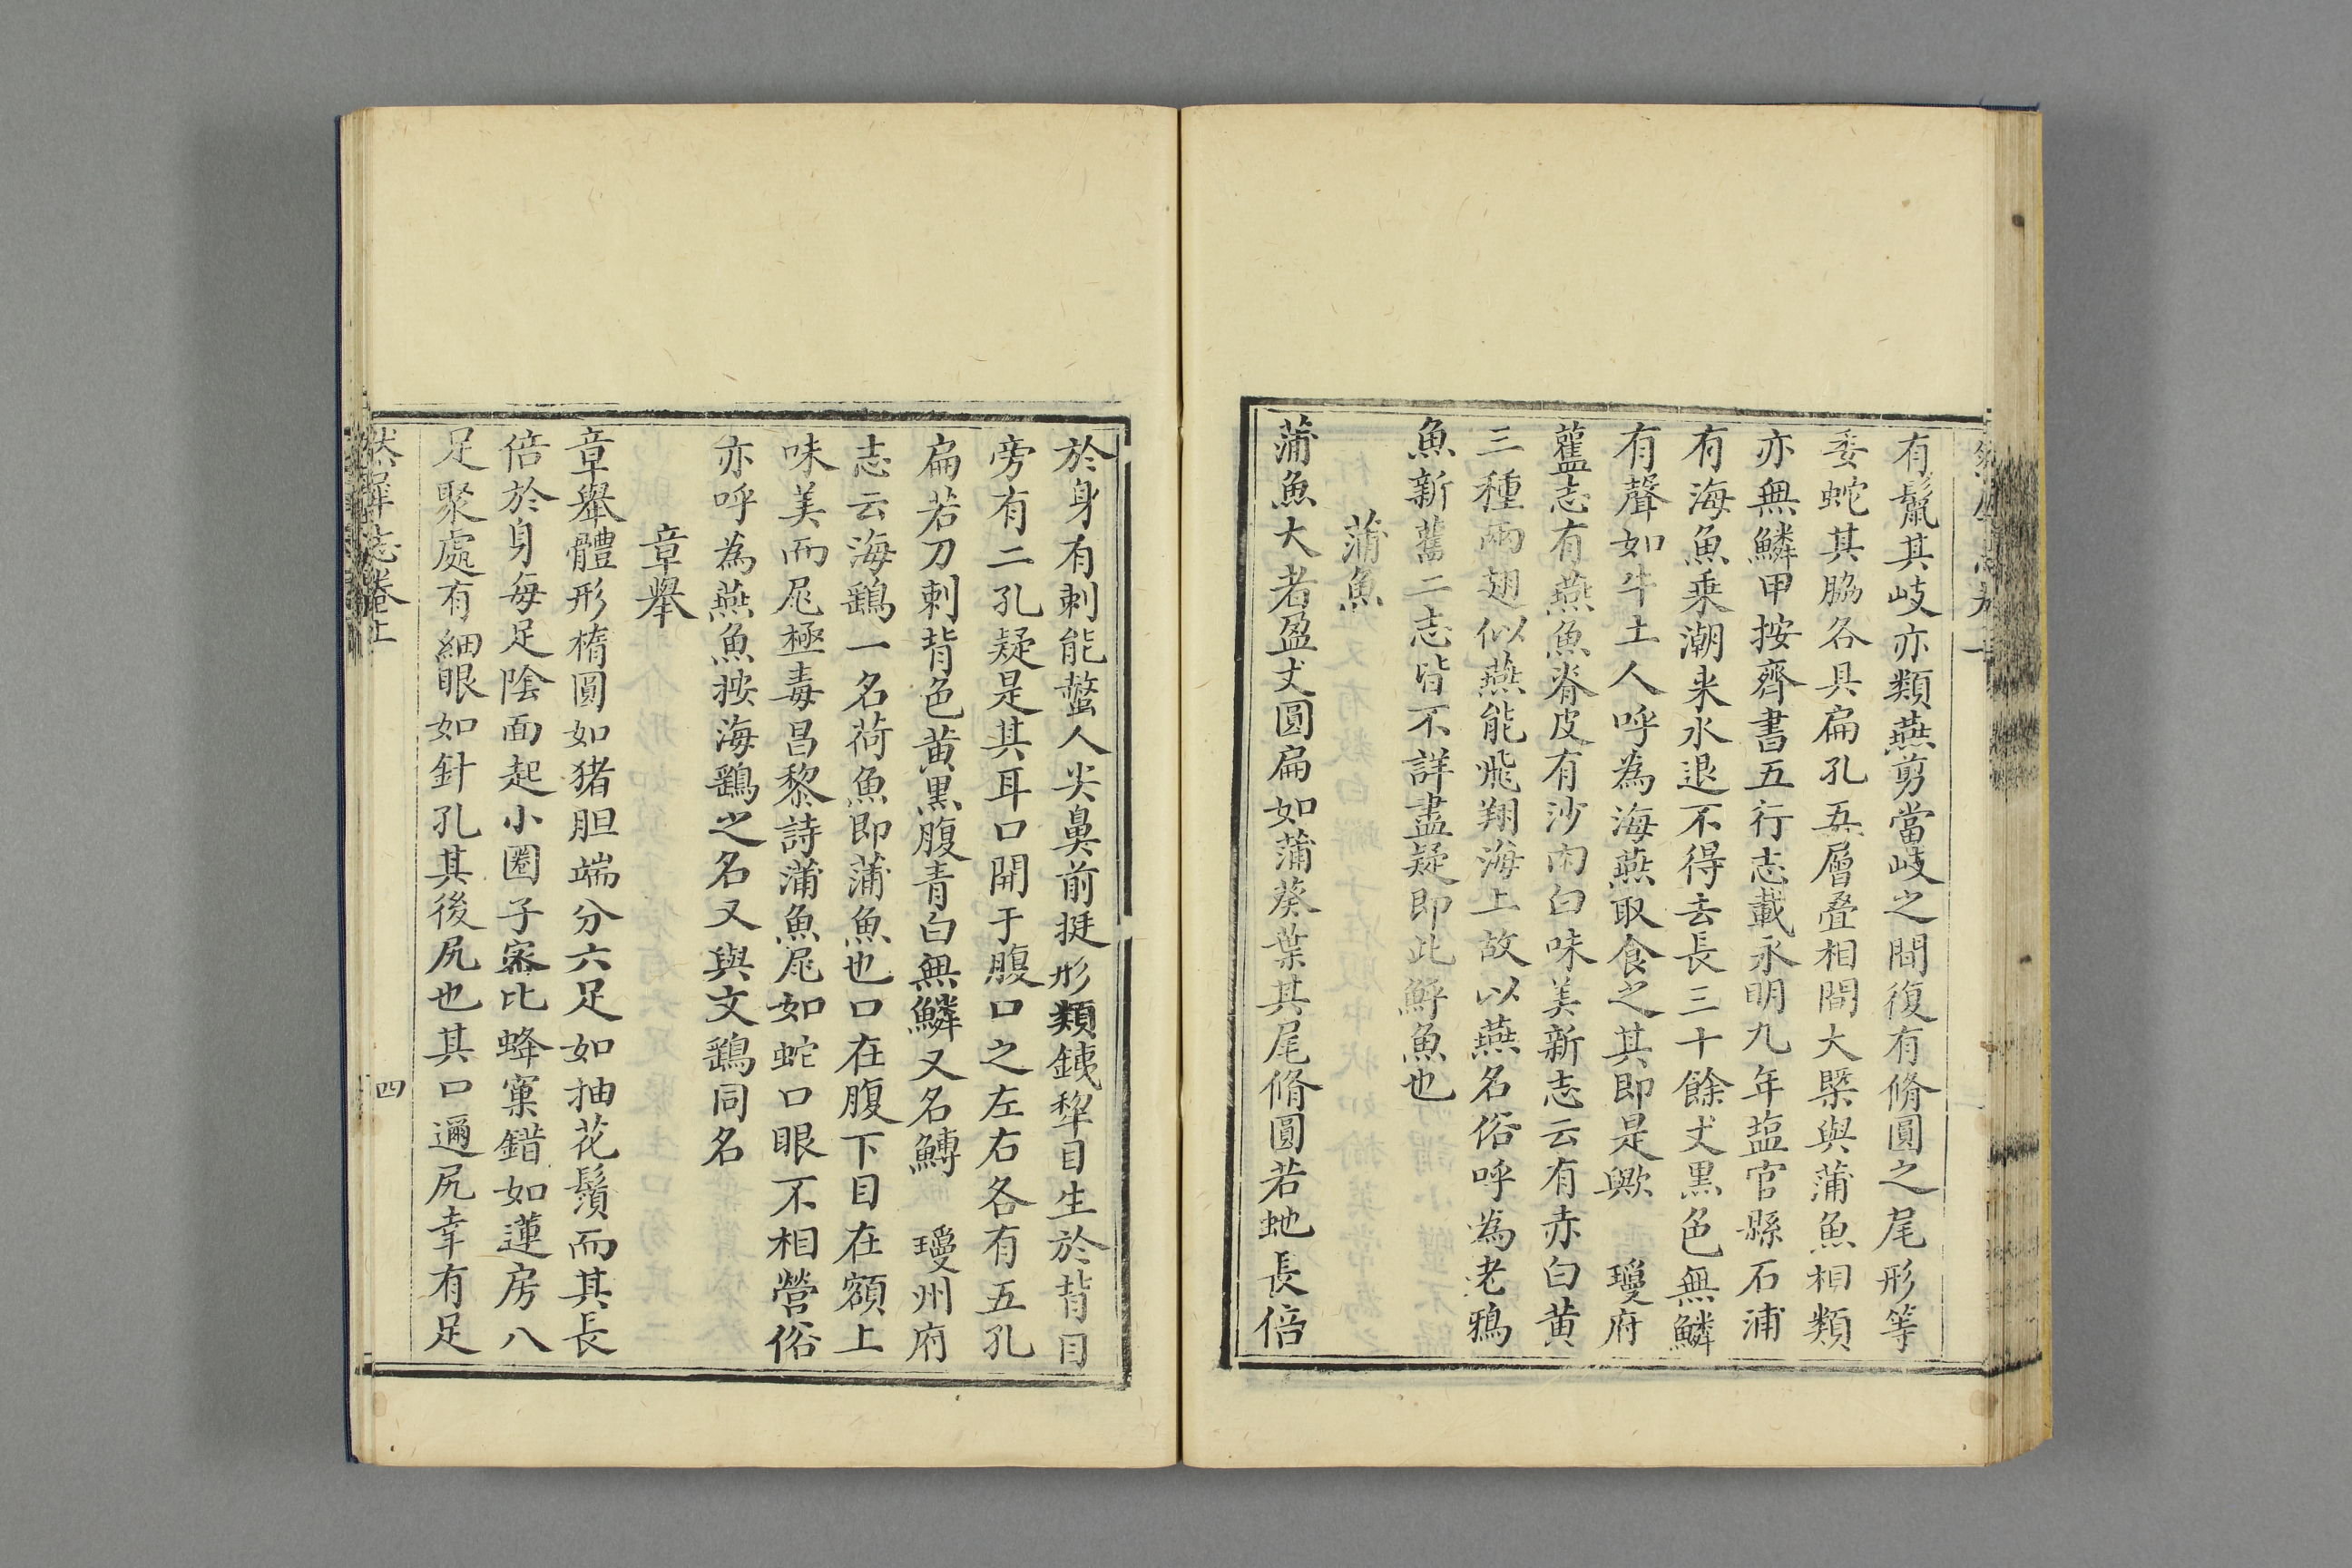 有鬛其岐亦類燕剪當岐之間復有脩圓之尾形等
委蛇其脇各具扁孔五層疊相間大槩與蒲魚相類
亦無鱗甲按齊書五行志載永明九年塩官縣石浦
有海魚乗潮来水退不得去長三十餘丈黒色無鱗
有聲如牛土人呼為海燕取食之其即是歟　瓊府
舊志有燕魚脊皮有沙肉白味美新志云有赤白黄
三種兩翅似燕能飛翔海上故以燕名俗呼為老鴉
魚新舊二志皆不詳盡疑即此魚也
蒲魚
蒲魚大者盈丈圓扁如蒲葵葉其尾脩圓若虵長倍
於身有刺能螫人尖鼻前挺形類銕犂目生於背目
旁有二孔疑是其耳口開于腹口之左右各有五孔
扁若刀刺背色黄黒腹青白無鱗又名鱄　瓊州府
志云海鷂一名荷魚即蒲魚也口在腹下目在額上
味美而尾極毒昌黎詩蒲魚尾如蛇口眼不相營俗
亦呼為燕魚按海鷂之名又與文鷂同名
章舉
章舉體形橢圓如猪胆端分六足如抽花鬚而其長
倍於身每足陰面起小圈子宻比蜂窠錯如蓮房八
足聚處有細眼如針孔其後尻也其口邇尻幸有足
然犀志卷上
四